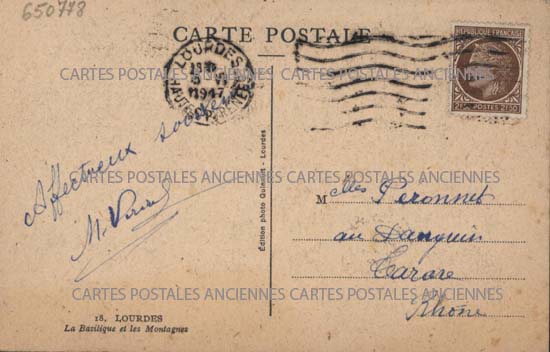 650778
CARTE POSTALE
LOURDES
1947
REPUBLIQUE FRANÇAISE
POSTES
2F50
CARTES POSTALES ANCIENNES CARTES POSTALES ANCIENNES
Affectueux
M.
Édition photo - Lourdes
CARTES POSTALES ANCIENNES CARTES POSTALES ANCIENNES
Mlles Peronnet
au Danguin
Tarare
CARTES POSTALES ANCIENNES CARTES POSTALES ANCIENNES
Rhône
18. LOURDES
La Basilique et les Montagnes